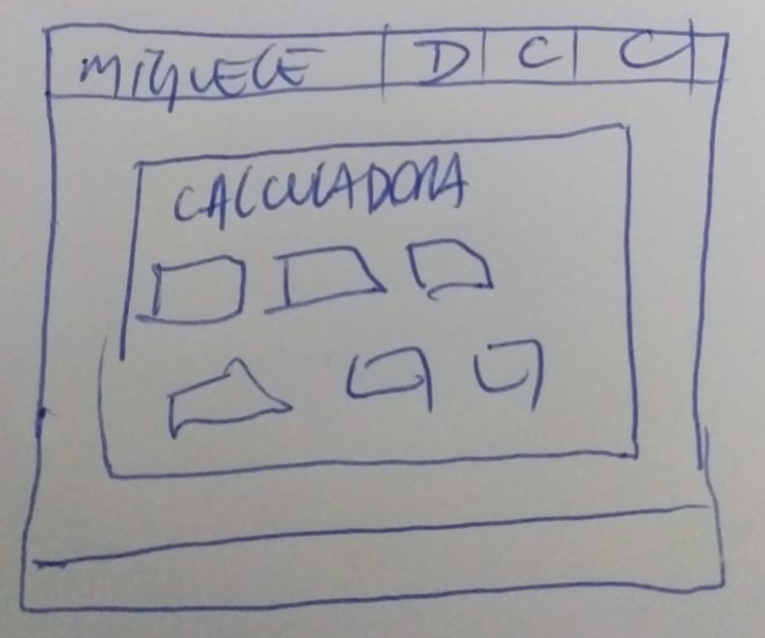 MIGUELE D C C
CALCULADORA